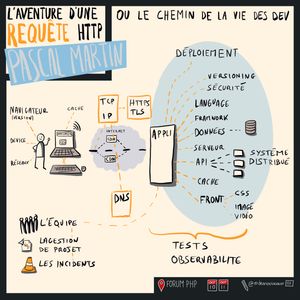 L'AVENTURE D'UNE
REQUÊTE HTTP
PASCAL MARTIN
OU LE CHEMIN DE LA VIE DES DEV
DÉPLOIEMENT
VERSIONING
SÉCURITÉ
LANGUAGE
FRAMEWORK
DONNÉES
SERVEUR
API
SYSTÈME
DISTRIBUÉ
CACHE
FRONT
CSS
IMAGE
VIDÉO
NAVIGATEUR
CACHE
DEVICE
RÉSEAU
TCP
IP
HTTPS
TLS
INTERNET
CDN
APPLI
DNS
L'ÉQUIPE
LA GESTION
DE PROJET
LES INCIDENTS
TESTS
OBSERVABILITÉ
FORUM PHP
10
11